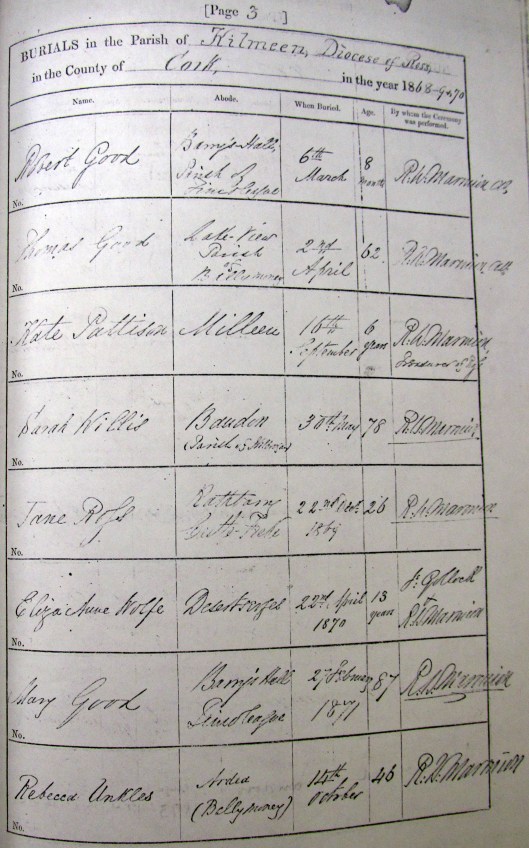 [Page 3 ]
BURIALS in the Parish of Kilmeen, Diocese of Ross,
in the County of Cork, in the year 1868-9&70
Name. Abode. When Buried. Age. By whom the Ceremony was performed.
Robert Good Barry's Hall, Parish of Timoleague 6th March 8 months R. W. Marmion
No.
Thomas Good Lake View Parish of 2nd April 62. Marmion
No.
Kate Pattison Milleen 16th September 6 years Marmion,
No.
Sarah Willis Bandon (Parish of 30th May 78 Marmion.
No.
Jane Ross 22nd Oct. 1869 26 Marmion
No.
Eliza Anne Wolfe Desertserges 22nd April 1870 13 years Gollock Marmion
No.
Mary Good Barry's Hall Timoleague 27 February 1871 87 Marmion
No.
Rebecca Unkles Ardea (Bellymoney) 14th October 46 Marmion
No.